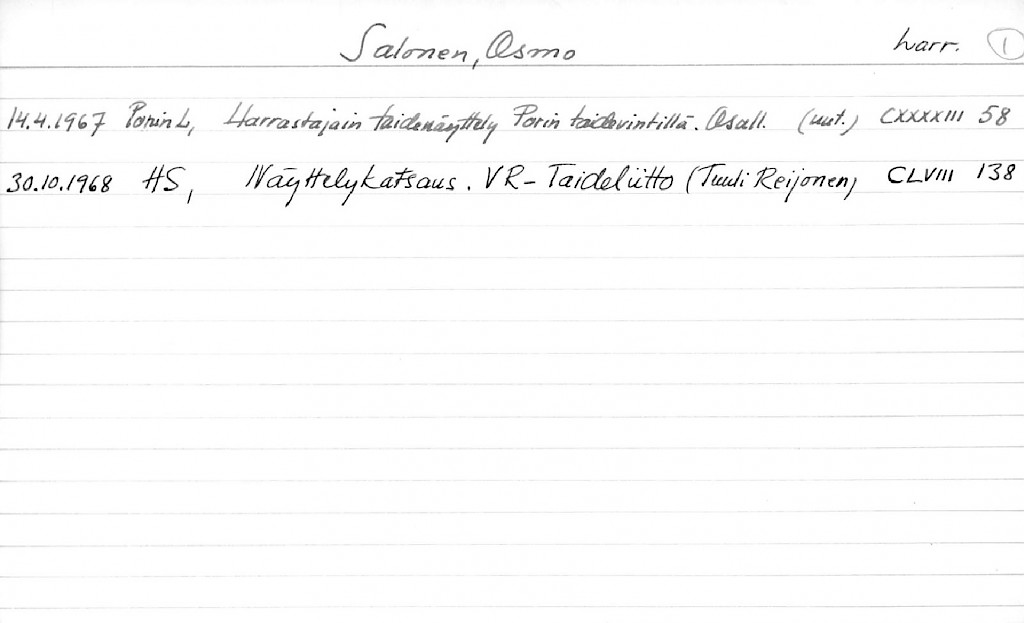 Salonen, Osmo harr. 1
14.4.1967 Porin L, Harrastajain taidenäyttely Porin taidevintillä. Osall. (uut.) CXXXXIII 58
30.10.1968 HS, Näyttelykatsaus. VR-Taideliitto (Tuuli Reijonen) CLVIII 138